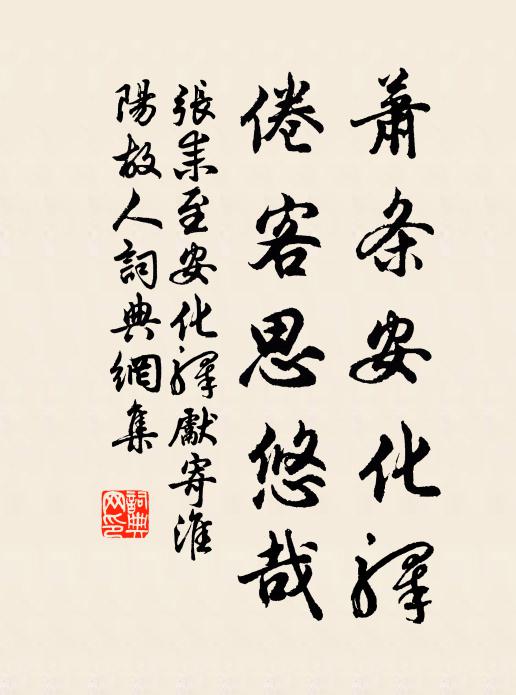 蕭条安化驛
倦客思悠哉
張耒至安化驛獻寄淮
陽故人詞典網集
詞典
网印